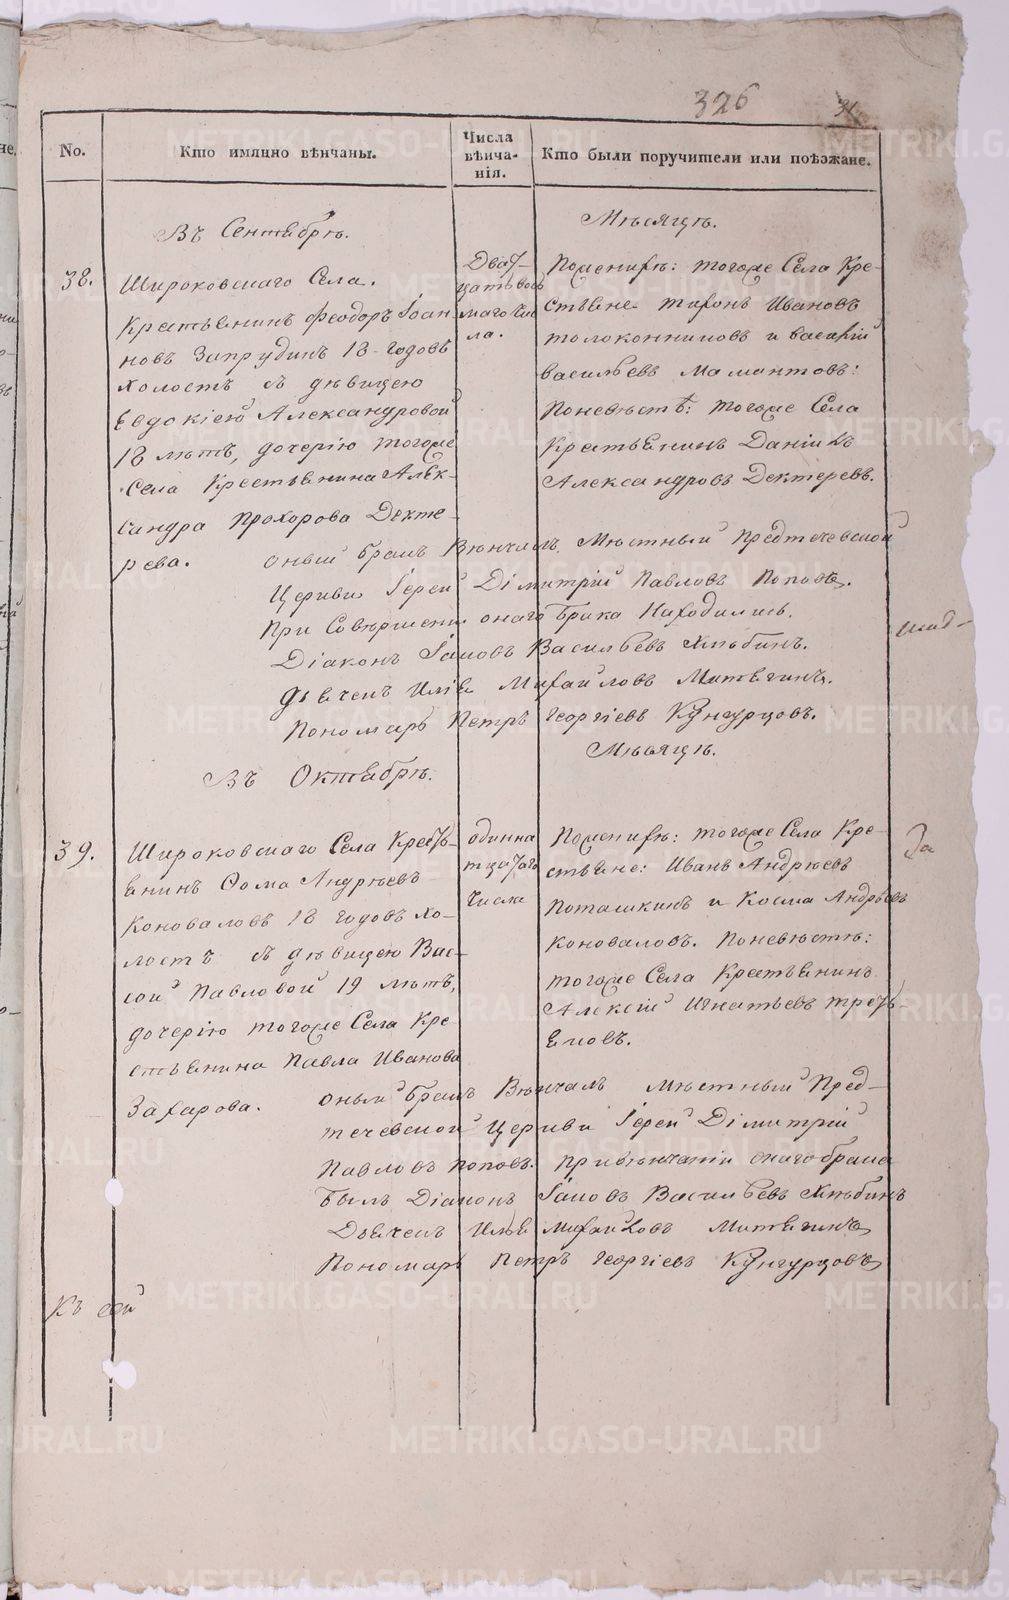 326
31
No.
Кто имянно вѣнчаны.
Числа
вѣнча-
нія.
Кто были поручители или поѣзжане.
Въ Сентябрѣ.
Мѣсяцѣ.
38.
Широковскаго Села.
Крестьянинъ Феодоръ Іоан-
новъ Запрудинъ 18 годовъ
холостъ съ дѣвицею
Евдокіею Александровой
18 лѣтъ, дочерію тогоже
Села Крестьянина Алек-
сандра Прохорова Дехте-
рева.
Двад-
цатовось
маго чис
ла.
Поженихѣ: тогоже Села Кре-
стьяне Тихонъ Ивановъ
Толоконниковъ и Василій
Васильевъ Мамонтовъ:
Поневѣстѣ: тогоже Села
Крестьянинъ Даніилъ
Александровъ Дехтеревъ.
оный бракъ Вѣнчалъ Мѣстный Предтечевской
Церкви Іерей Дімитрій Павловъ Поповъ.
При Совершеніи онаго брака Находились.
Діаконъ Іаковъ Васильевъ Хлѣбинъ.
Дьячекъ Илія Михайловъ Митягинъ.
Пономарь Петръ Георгіевъ Кунгурцовъ.
Въ Октябрѣ.
Мѣсяцѣ.
39.
Широковскаго Села Кресть-
янинъ Фома Андреевъ
Коноваловъ 18 годовъ хо-
лостъ съ дѣвицею Вас-
сой Павловой 19 лѣтъ,
дочерію тогоже Села Кре
стьянина Павла Иванова
Захарова.
одинна
тцатаго
числа
Поженихѣ: тогоже Села Кре-
стьяне: Иванъ Андреевъ
Поташкинъ и Косма Андреевъ
Коноваловъ. Поневѣстѣ:
тогоже Села Крестьянинъ
Алексій Игнатьевъ Треть-
яковъ.
оный бракъ Вѣнчалъ Мѣстный Пред-
течевской Церкви Іерей Дімитрій
Павловъ Поповъ. При вѣнчаніи онаго брака
былъ Діаконъ Іаковъ Васильевъ Хлѣбинъ
Дьячекъ Илья Михайловъ Митягинъ
Пономарь Петръ Георгіевъ Кунгурцовъ
Къ сей
METRIKI.GASO-URAL.RU